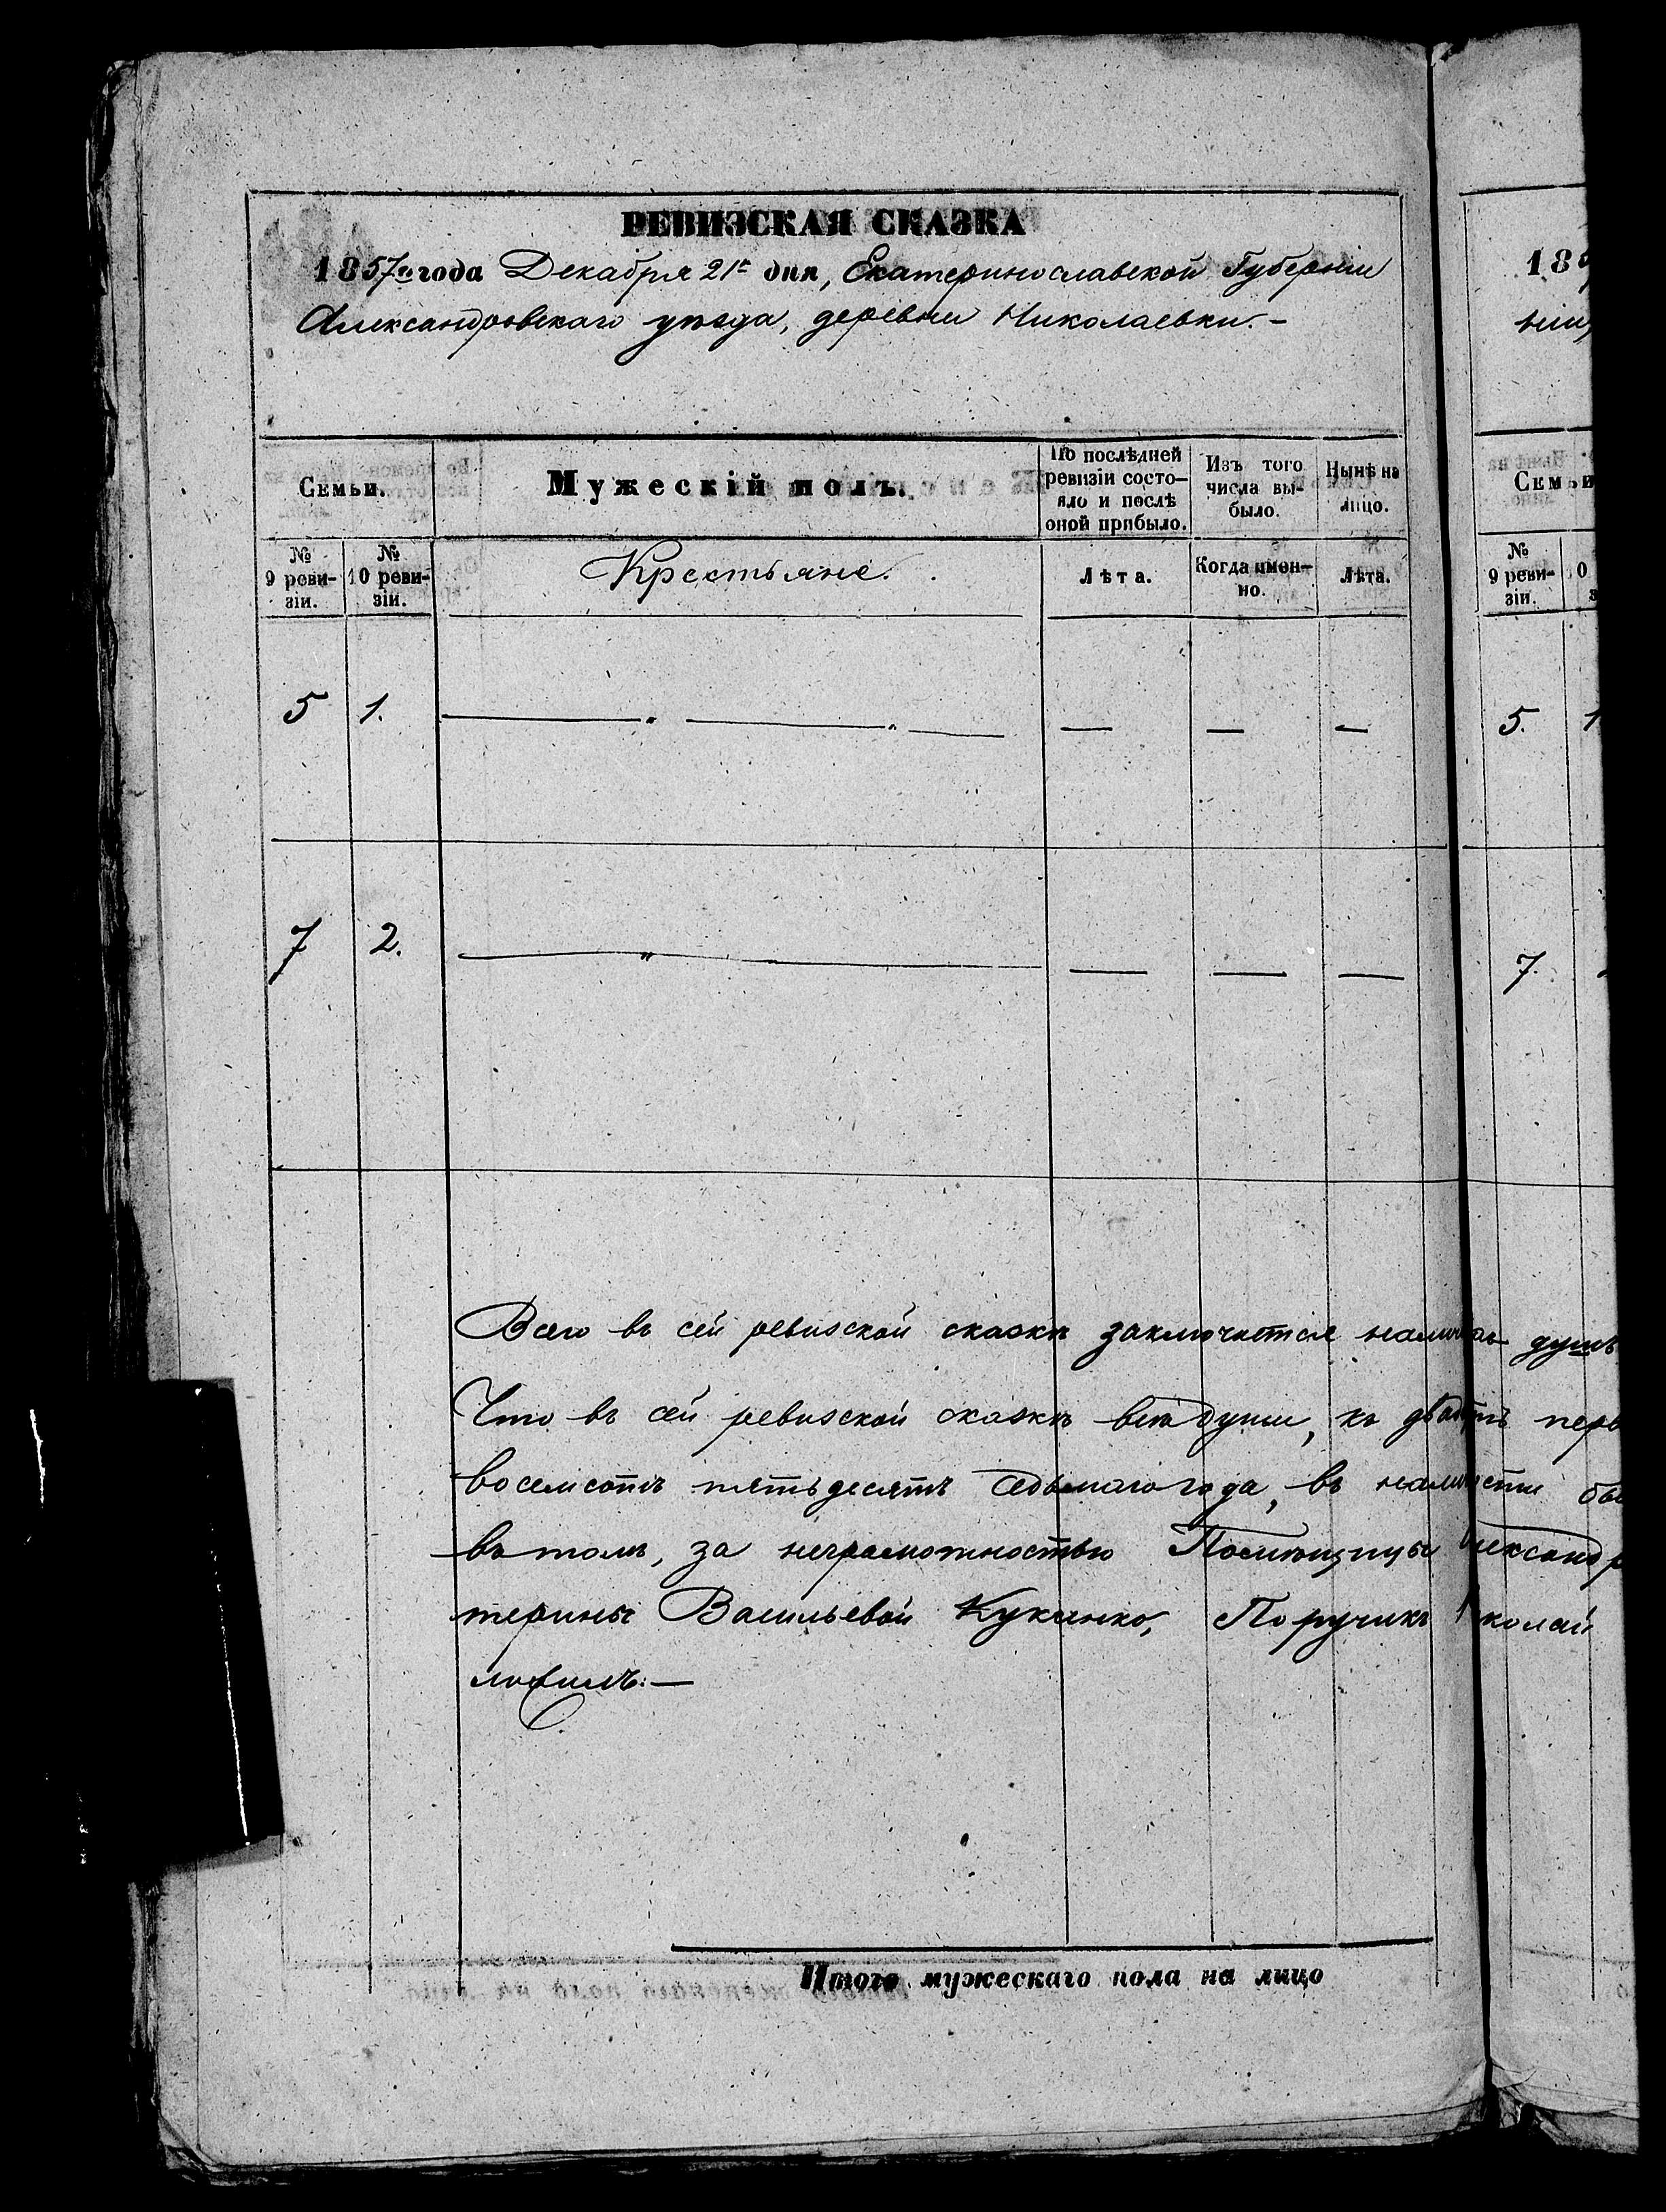 РЕВИЗСКАЯ СКАЗКА
1857го года Декабря 21го дня, Екатеринославской Губерніи
Александровскаго уѣзда, деревни Николаевки.–
Семьи.
Мужескій полъ.
По послѣдней ревизіи состо-
яло и послѣ
оной прибыло.
Изъ того
числа вы-
было.
Нынѣ на
лицо.
№
9 реви-
зіи.
№
10 реви-
зіи.
Крестьяне.
Лѣта.
Когда имен-
но.
Лѣта.
5 1. — — —
7 2. — — —
Всего въ сей ревизской сказкѣ заключается душъ
Что въ сей ревизской сказкѣ всѣ души, къ перв
восемсотъ пятьдесятъ седьмаго года, въ бы
въ томъ, за неграмотностью Помѣщицы Александр
терины Васильевой Поручикъ колай
Итого мужескаго пола на лицо
18
ніи,
Семьи
№
9 реви-
зіи.
5. 1
7.